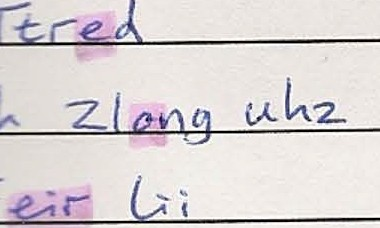 Ttred
h zlong uhz
eir lii